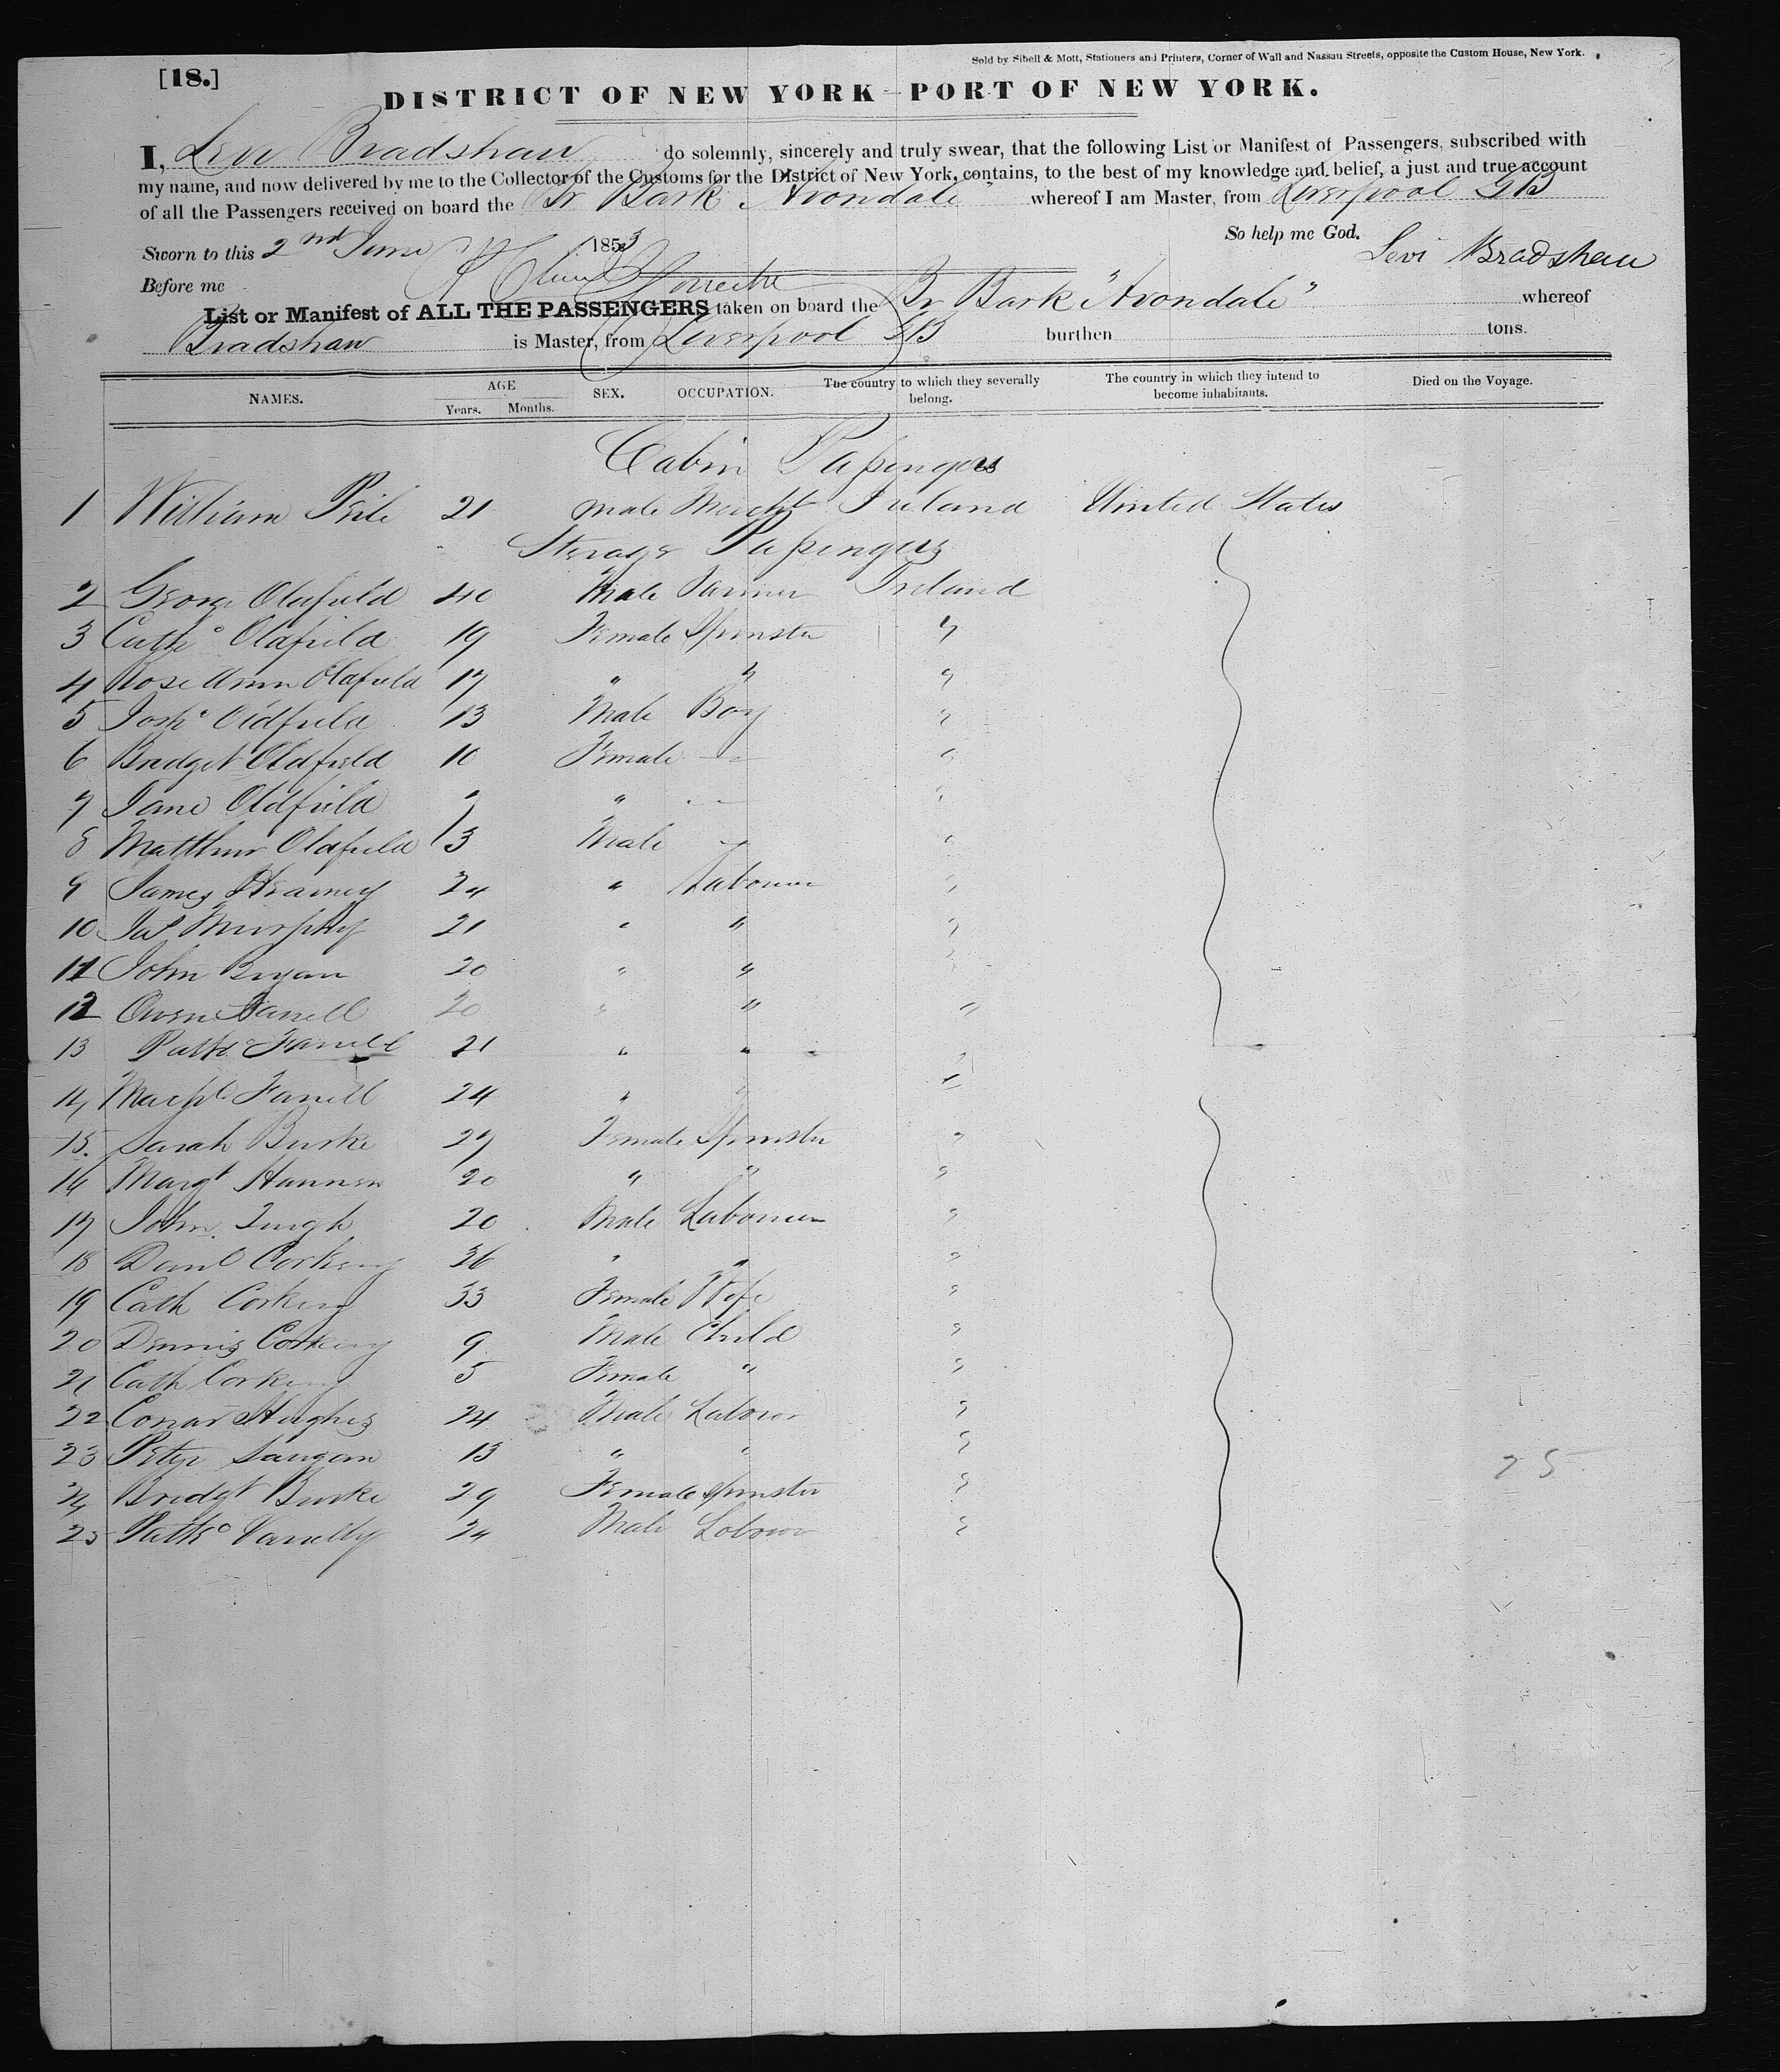 Sold by Sibell & Mott, Stationers and Printers, Corner of Wall and Nassau Streets, opposite the Custom House, New York.
[18.]
DISTRICT OF NEW YORK—PORT OF NEW YORK.
I, Levi Bradshaw do solemnly, sincerely and truly swear, that the following List or Manifest of Passengers, subscribed with
my name, and now delivered by me to the Collector of the Customs for the District of New York, contains, to the best of my knowledge and belief, a just and true account
of all the Passengers received on board the Br Bark Avondale whereof I am Master, from Liverpool GB
So help me God.
Sworn to this 2nd June 1853
Levi Bradshaw
Before me
List or Manifest of ALL THE PASSENGERS taken on board the Br Bark "Avondale" whereof
Bradshaw is Master, from Liverpool GB burthen tons.
NAMES. AGE Years. Months. SEX. OCCUPATION. The country to which they severally belong. The country in which they intend to become inhabitants. Died on the Voyage.
Cabin Passengers
1 William 21 Male Mercht Ireland United States
Sterage Passengers
2 George Oldfield 40 Male Farmer Ireland
3 Cathe Oldfield 19 Female Spinster "
4 Rose Ann Oldfield 17 " " "
5 Josh Oldfield 13 Male Boy "
6 Bridget Oldfield 10 Female — "
7 Jane Oldfield 7 " — "
8 Matthew Oldfield 3 Male — "
9 James 24 " Labourer "
10 Jas Murphy 21 " " "
11 John Bryan 20 " " "
12 Owen Farrell 20 " " "
13 Patk Farrell 21 " " "
14 Farrell 24 " " "
15. Sarah Burke 27 Female Spinster "
16 Margt Hannen 20 " " "
17 John 20 Male Labourer "
18 Danl Corkery 36 " " "
19 Cath Corkery 33 Female Wife "
20 Dennis Corkery 9 Male Child "
21 Cath Corkery 5 Female " "
22 Hughes 24 Male Labour "
23 Peter 13 " " "
24 Bridgt Burke 29 Female Spinster "
25 Patk 24 Male Labour "
25